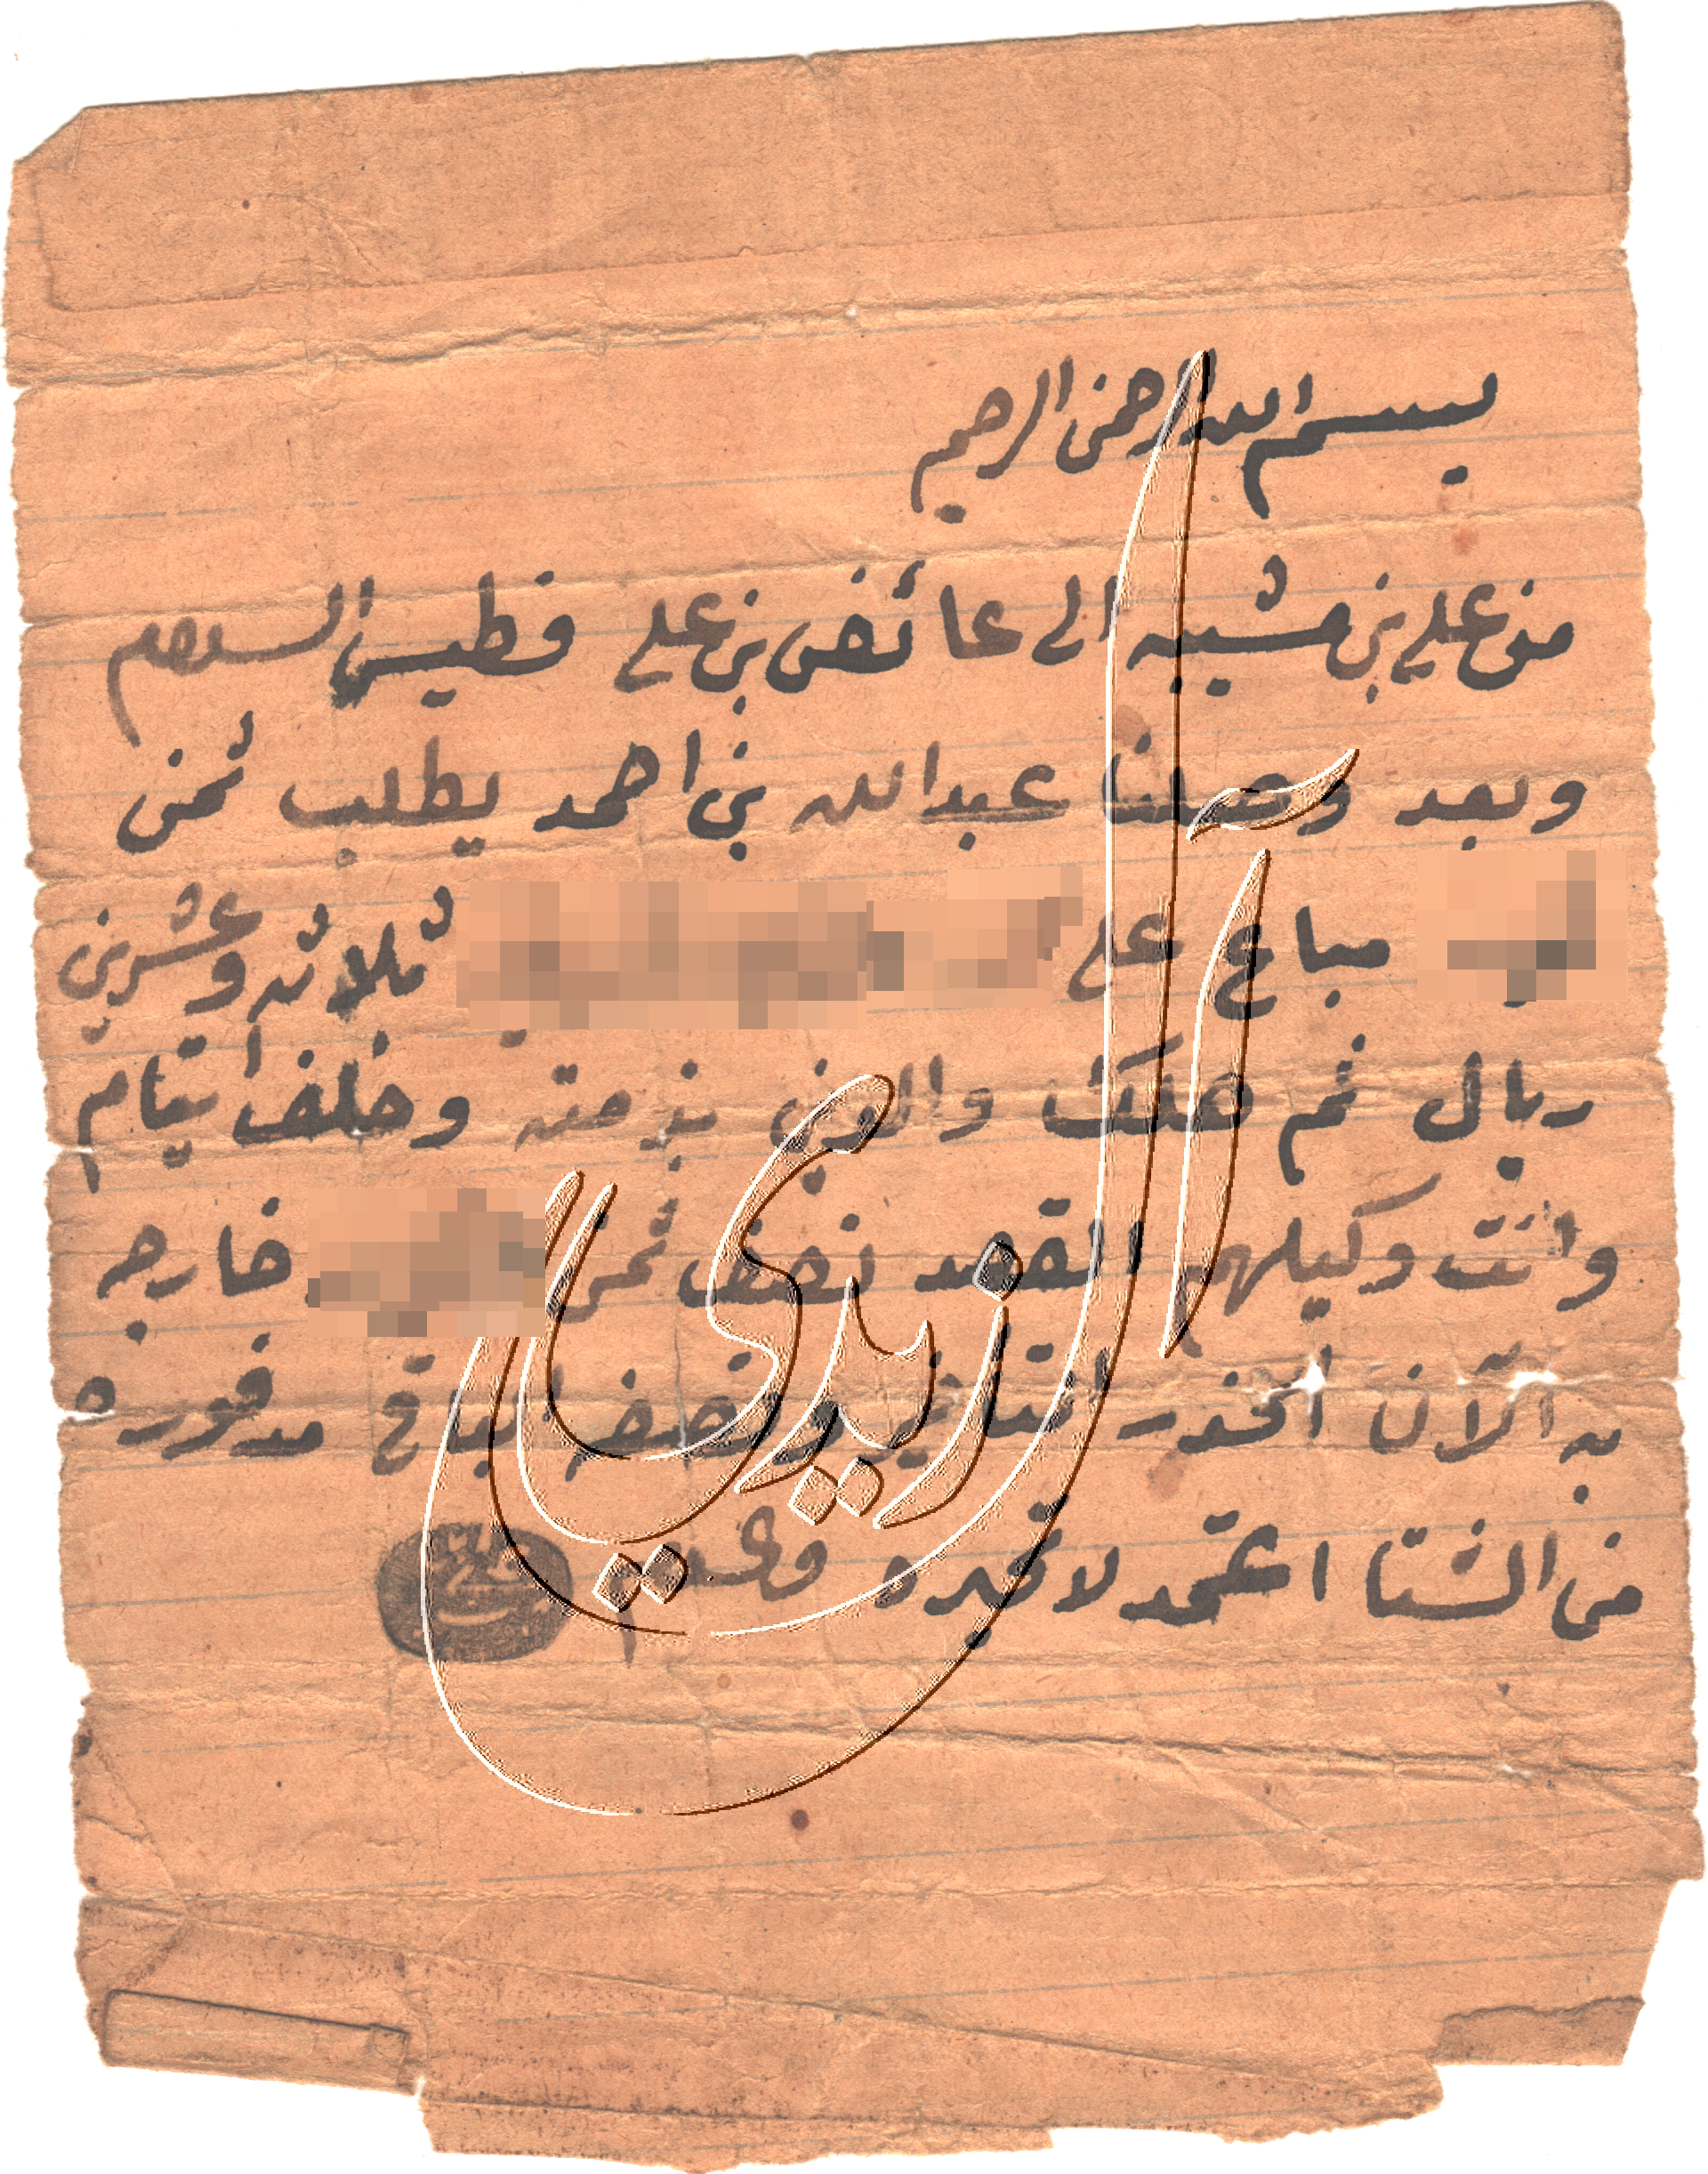 بسم الله الرحمن الرحيم
من علي بن مشيبه الى عائض بن علي فطيس السلام
وبعد وصلنا عبدالله بن احمد يطلب ثمن
مباع على ثلاثه وعشرين
ريال ثم هلك والدين بذمته وخلف ايتام
وانت وكيلهم القصد نصف ثمن خارجه
به الآن ونصف الباقي مدفوره
من الشتا اعتمد لا تحيره
آل زيدي